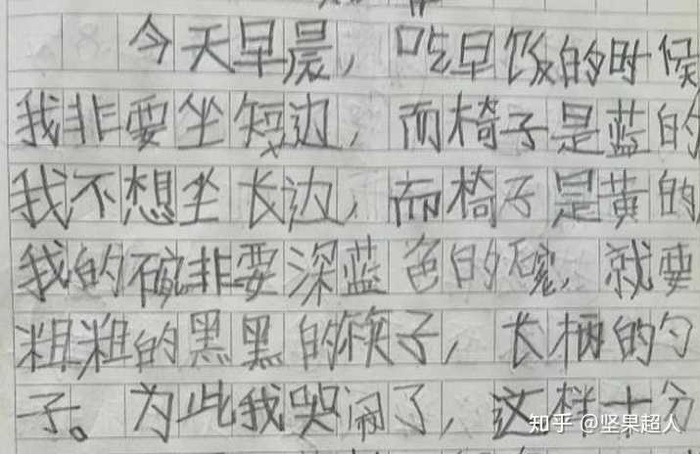 今天早晨，吃早饭的时候
我非要坐短边，而椅子是蓝的
我不想坐长边，而椅子是黄的
我的碗非要深蓝色的碗，就要
粗粗的黑黑的筷子，长柄的勺
子。为此我哭闹了，这样十分
知乎 @坚果超人